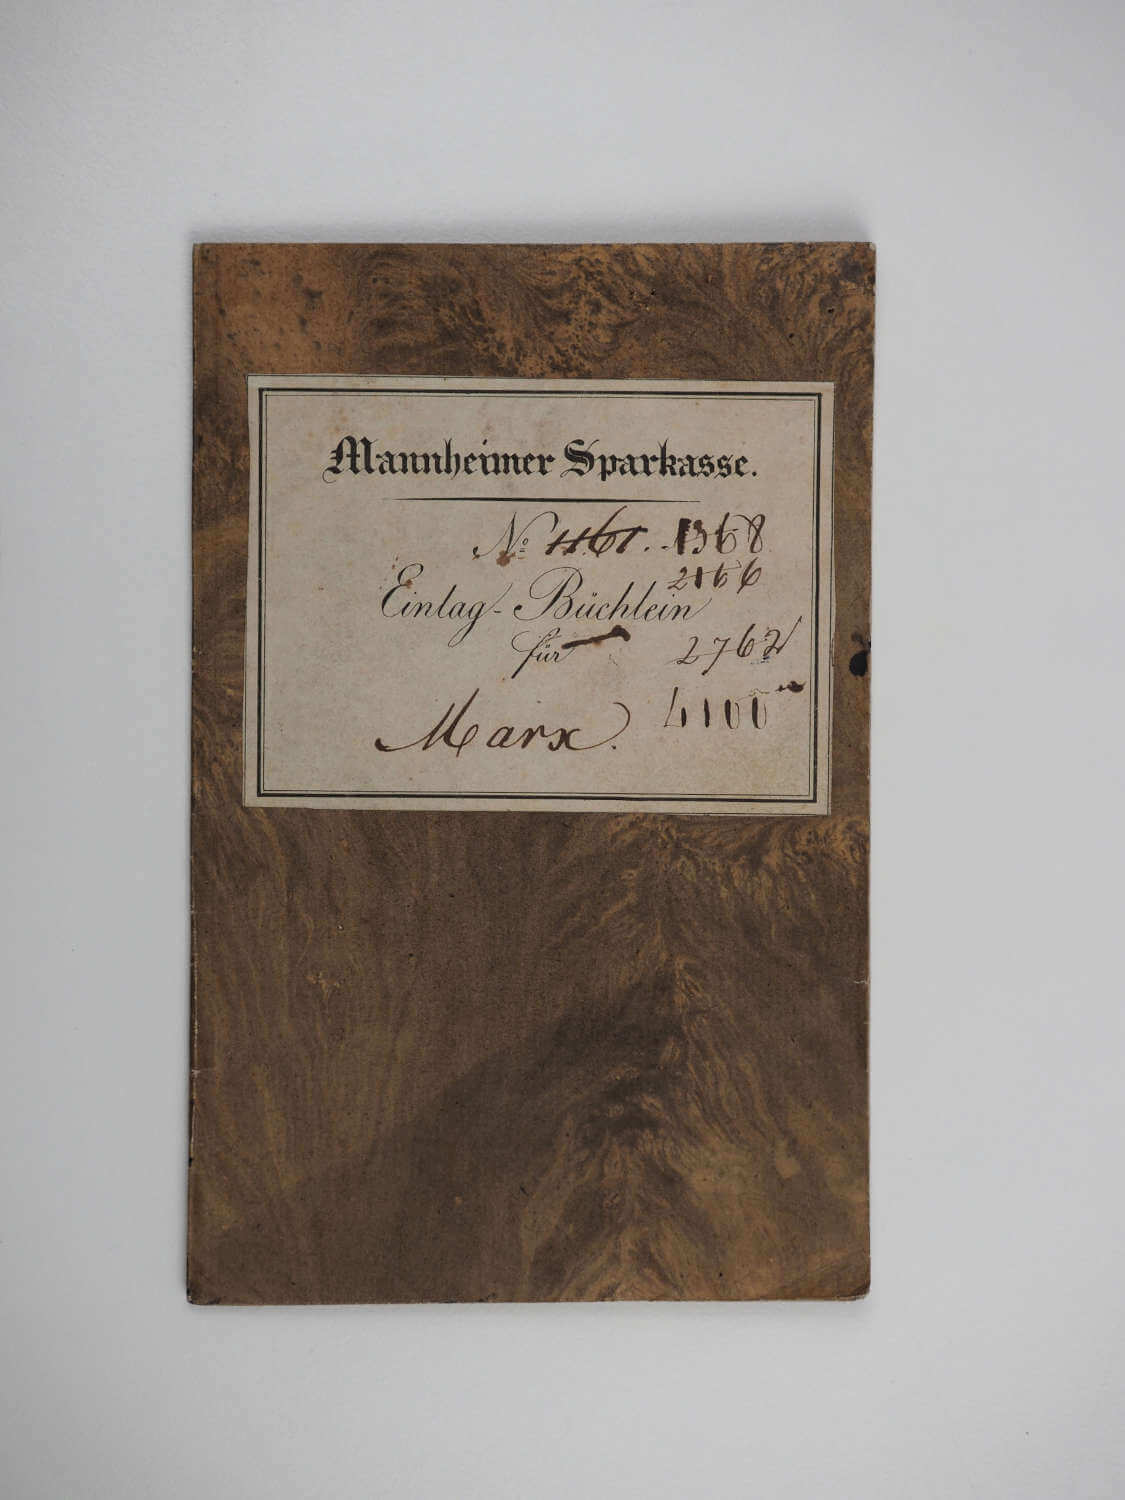 Mannheimer Sparkasse.
No. 1161. 1368
2166
Einlag-Büchlein
für 2762
Marx. 4100